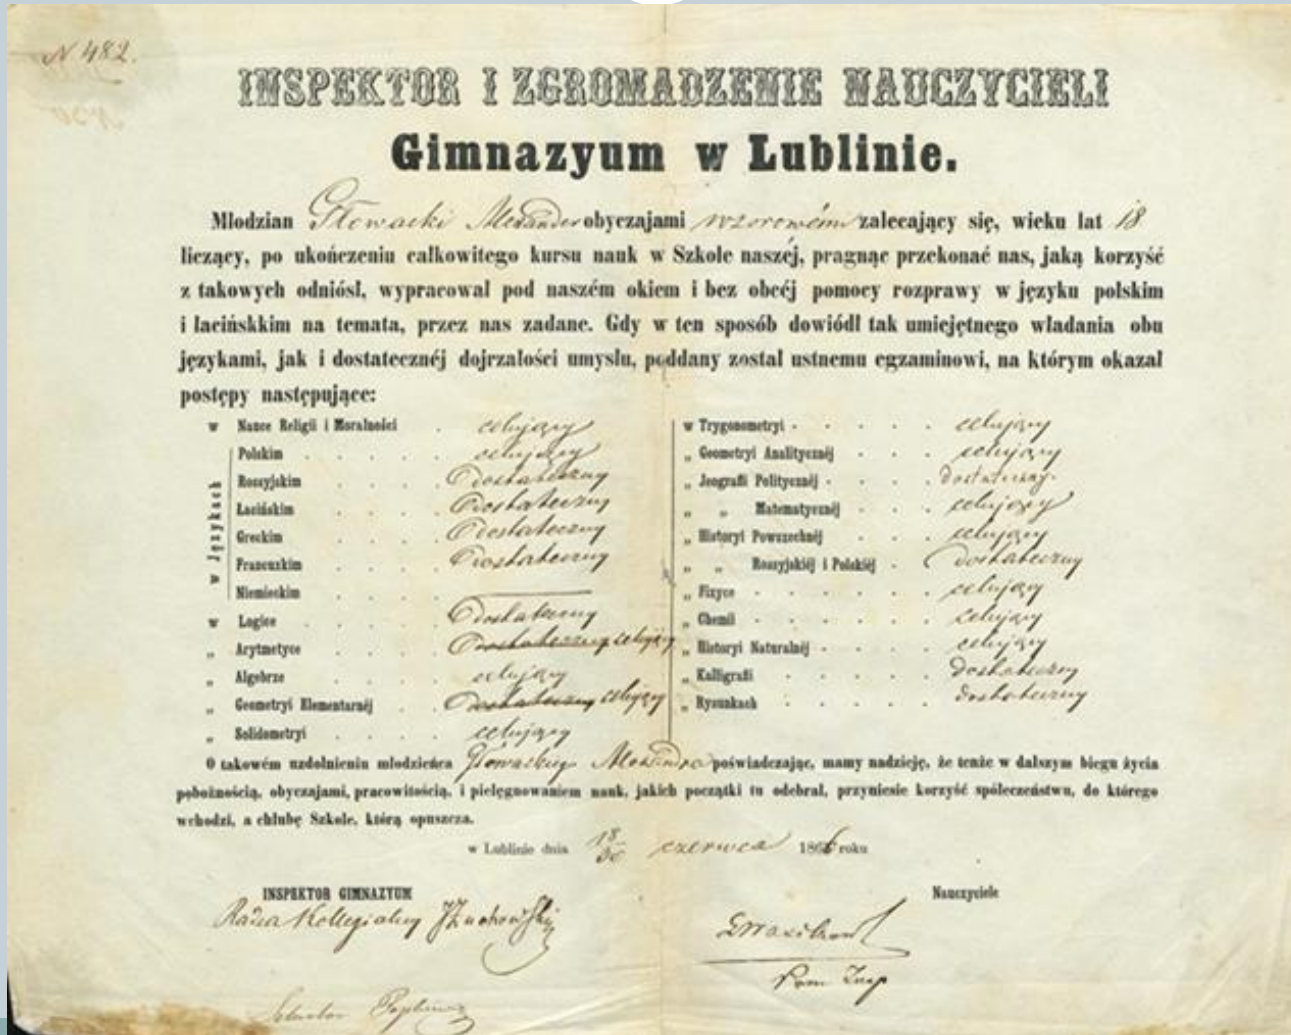 N 482.
INSPEKTOR I ZGROMADZENIE NAUCZYCIELI
Gimnazyum w Lublinie.
Młodzian Głowacki Alexander obyczajami wzorowémi zalecający się, wieku lat 18
liczący, po ukończeniu całkowitego kursu nauk w Szkole naszéj, pragnąc przekonać nas, jaką korzyść
z takowych odniósł, wypracował pod naszém okiem i bez obcéj pomocy rozprawy w języku polskim
i łacińskkim na temata, przez nas zadane. Gdy w ten sposób dowiódł tak umiejętnego władania obu
językami, jak i dostatecznéj dojrzałości umysłu, poddany został ustnemu egzaminowi, na którym okazał
postępy następujące:
w Nauce Religii i Moralności . celujący
w Językach
Polskim . . . . . celujący
Rossyjskim . . . . Dostateczny
Łacińskim . . . . Dostateczny
Greckim . . . . Dostateczny
Francuzkim . . . . Dostateczny
Niemieckim . . . .
w Logice . . . . Dostateczny
„ Arytmetyce . . . . Dostateczny celujący
„ Algebrze . . . . celujący
„ Geometryi Elementarnéj . . Dostateczny celujący
„ Solidometryi . . . celujący
w Trygonometryi . . . . . celujący
„ Geometryi Analitycznéj . . . celujący
„ Jeografii Politycznéj . . . . dostateczny.
„ „ Matematycznéj . . . celujący
„ Historyi Powszechnéj . . . celujący
„ „ Rossyjskiéj i Polskiéj . dostateczny
„ Fizyce . . . . . . celujący
„ Chemii . . . . . . celujący
„ Historyi Naturalnéj . . . . celujący
„ Kalligrafii . . . . . dostateczny
„ Rysunkach . . . . . dostateczny
O takowém uzdolnieniu młodzieńca Głowackiego Alexandra poświadczając, mamy nadzieję, że tenże w dalszym biegu życia
pobożnością, obyczajami, pracowitością, i pielęgnowaniem nauk, jakich początki tu odebrał, przyniesie korzyść społeczeństwu, do którego
wchodzi, a chlubę Szkole, którą opuszcza.
w Lublinie dnia 18/30 czerwca 1866 roku
INSPEKTOR GIMNAZYUM
Nauczyciele
Radca Kollegialny
Pom Insp